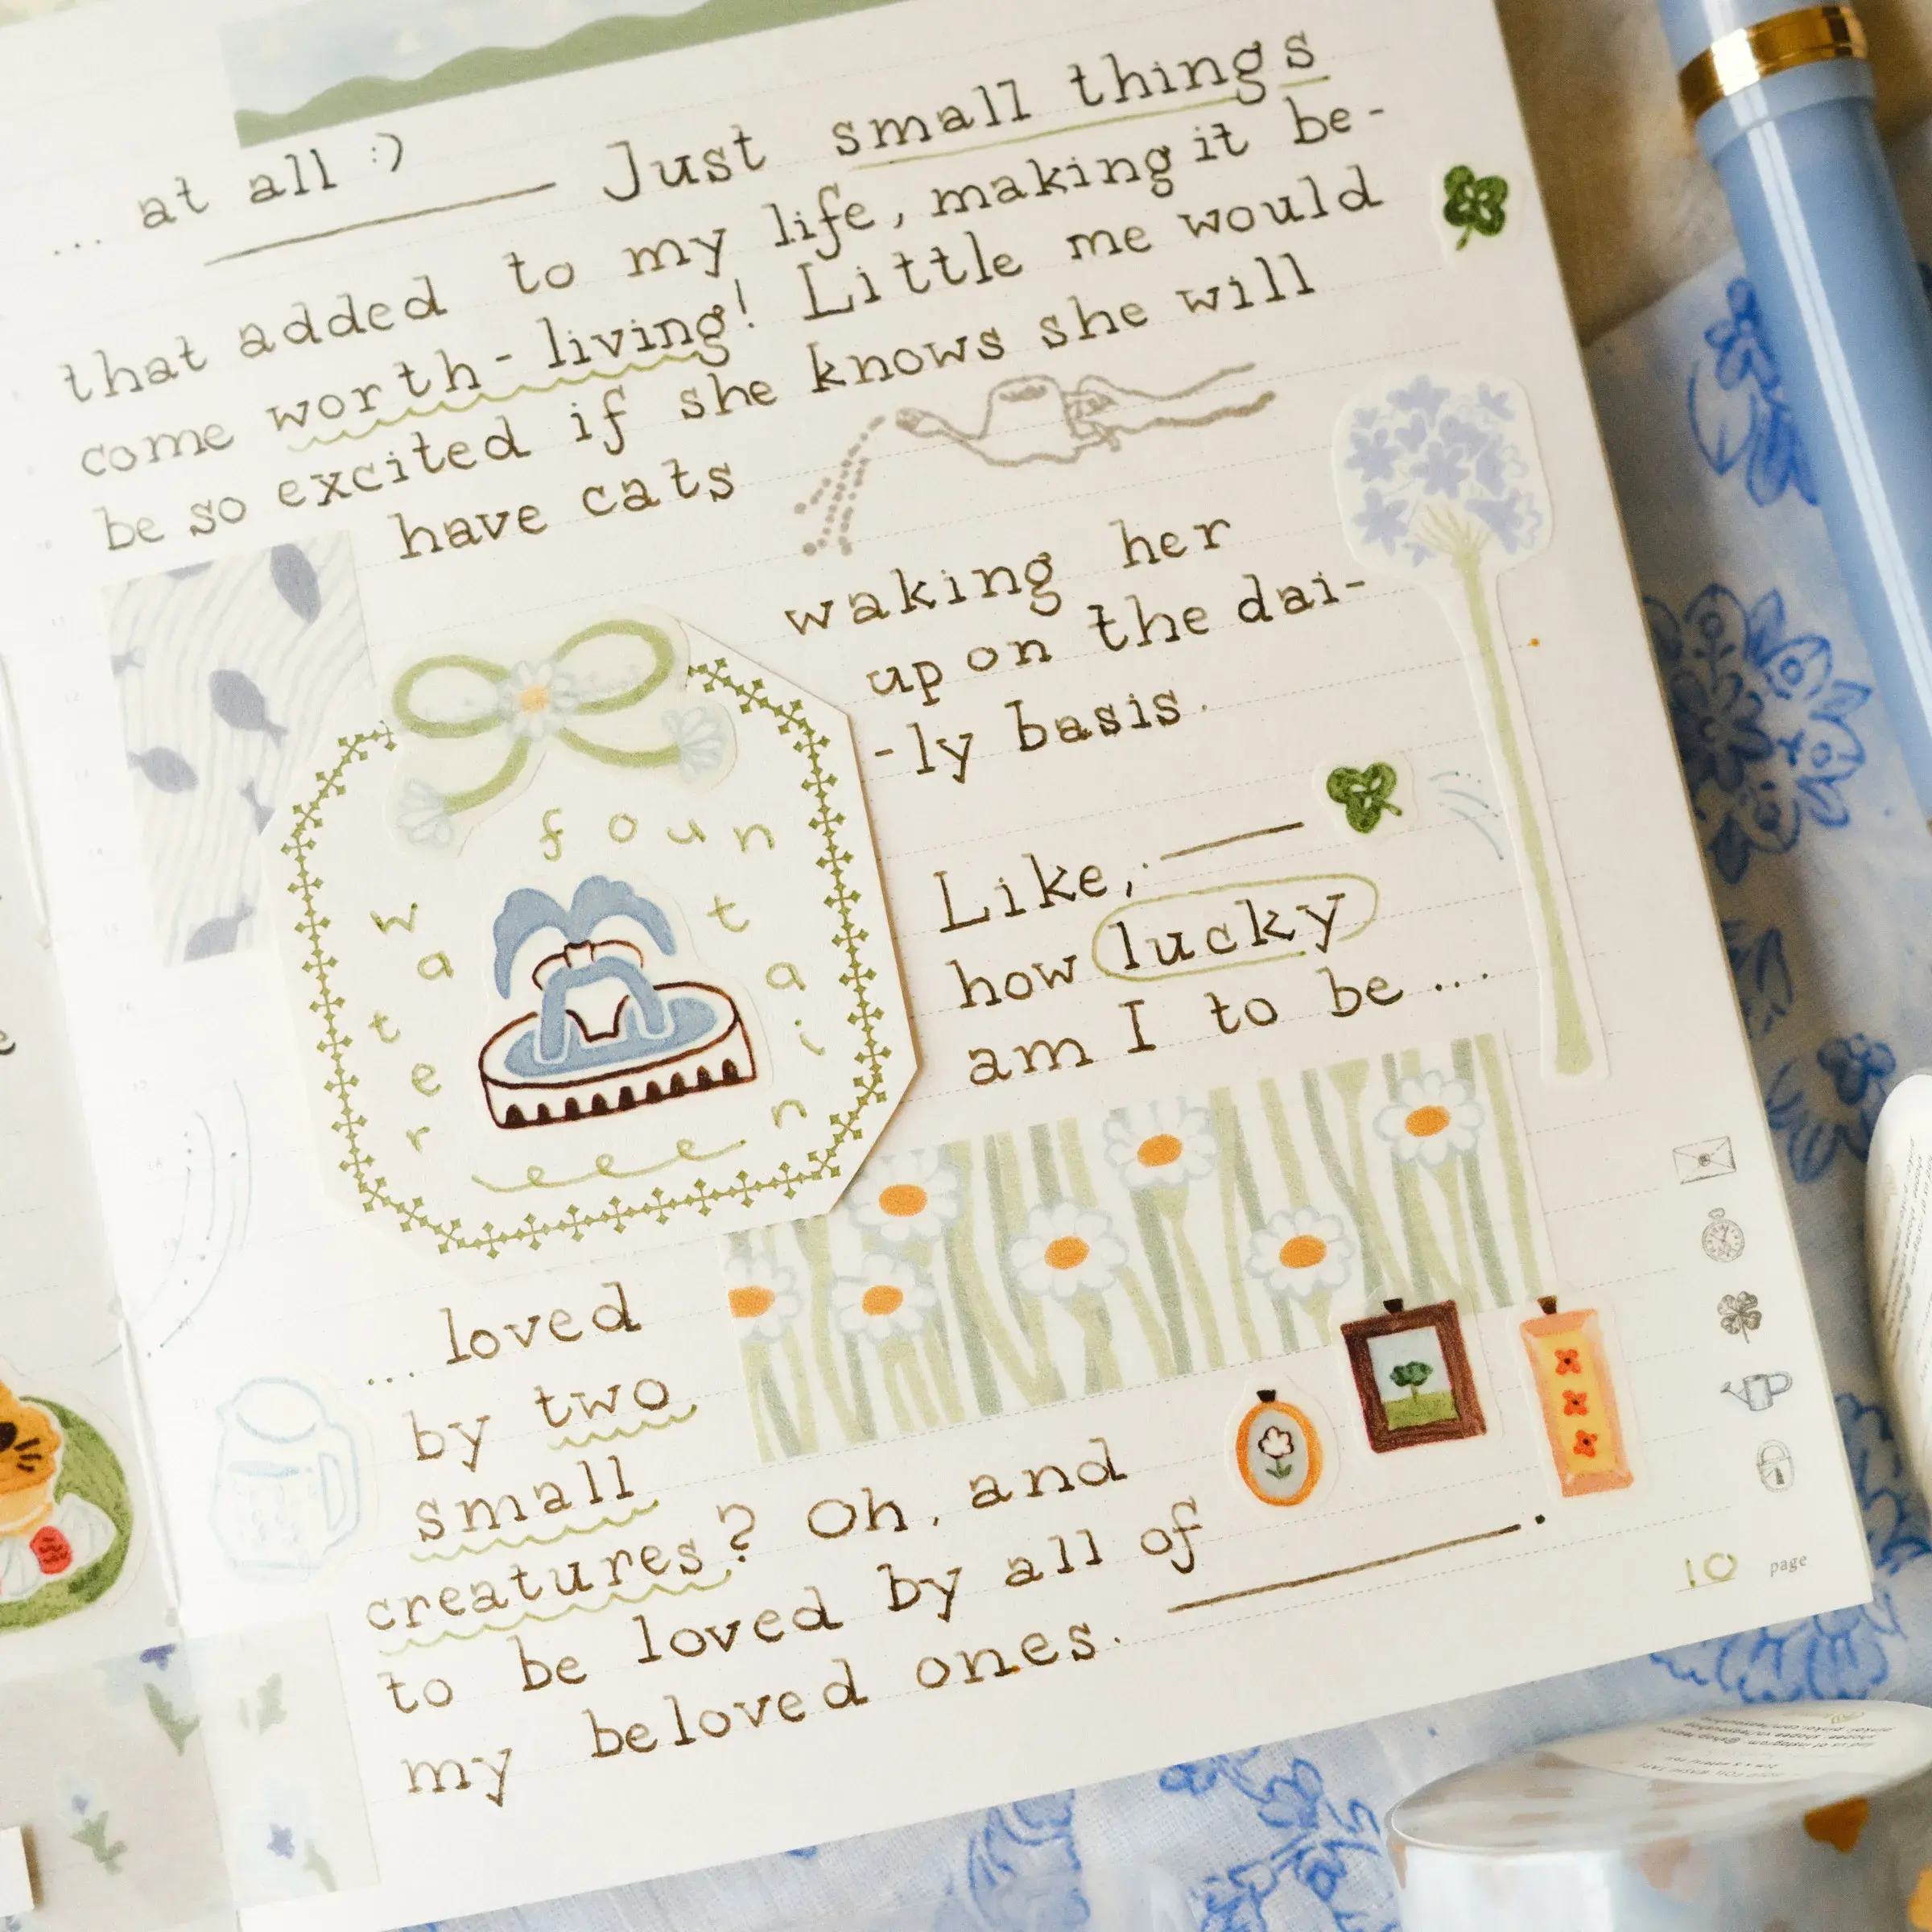 ... at all :)
Just small things
that added to my life, making it be-
come worth-living! Little me would
be so excited if she knows she will
have cats
waking her
up on the dai-
-ly basis.
water fountain
Like,
how lucky
am I to be ...
... loved
by two
small
creatures? Oh, and
to be loved by all of
my beloved ones.
10 page